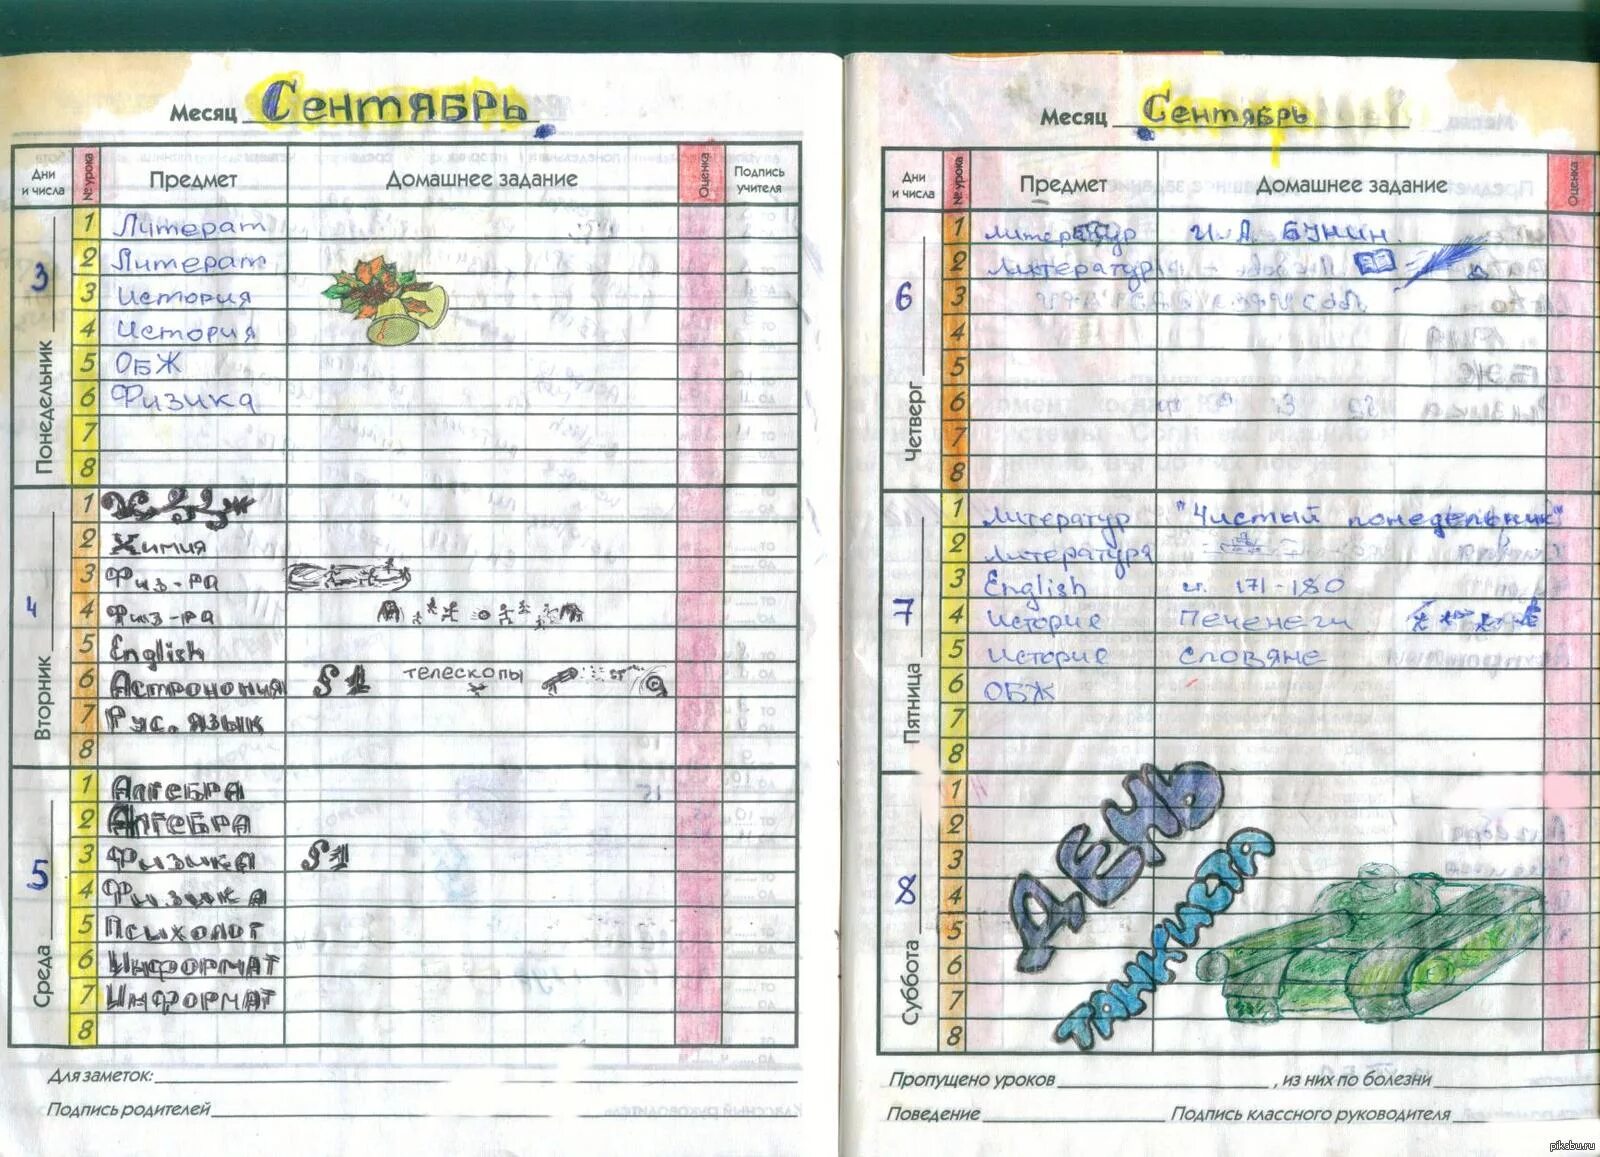 Месяц Сентябрь
Дни и числа № урока Предмет Домашнее задание Оценка Подпись учителя
Понедельник 3
1 Литерат
2 Литерат
3 История
4 История
5 ОБЖ
6 Физика
7
8
Вторник 4
1
2 Химия
3 Физ-ра
4 Физ-ра
5 English
6 Астрономия §1 телескопы
7 Рус. язык
8
Среда 5
1 Алгебра
2 Алгебра
3 Физика §1
4 Физика
5 Психолог
6 Информат
7 Информат
8
Для заметок:
Подпись родителей
Месяц Сентябрь
Дни и числа № урока Предмет Домашнее задание Оценка
Четверг 6
1 Литератур И. А. БУНИН
2 Литератур
3
4
5
6
7
8
Пятница 7
1 Литератур "Чистый понедельник"
2 Литература
3 English ст. 171-180
4 История Печенеги
5 История Словяне
6 ОБЖ
7
8
Суббота 8
1
2
3
4
5
6
7
8
ДЕНЬ
ТАНКИСТА
Пропущено уроков , из них по болезни
Поведение Подпись классного руководителя
pikabu.ru